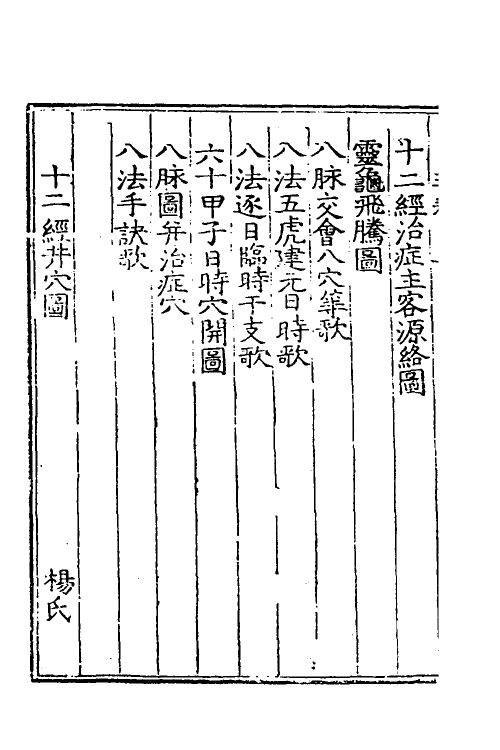 十二經治症主客源絡圖
靈龜飛騰圖
八脉交會八穴等歌
八法五虎建元日時歌
八法逐日臨時干支歌
六十甲子日時穴開圖
八脉圖并治症穴
八法手訣歌
十二經井穴圖　楊氏